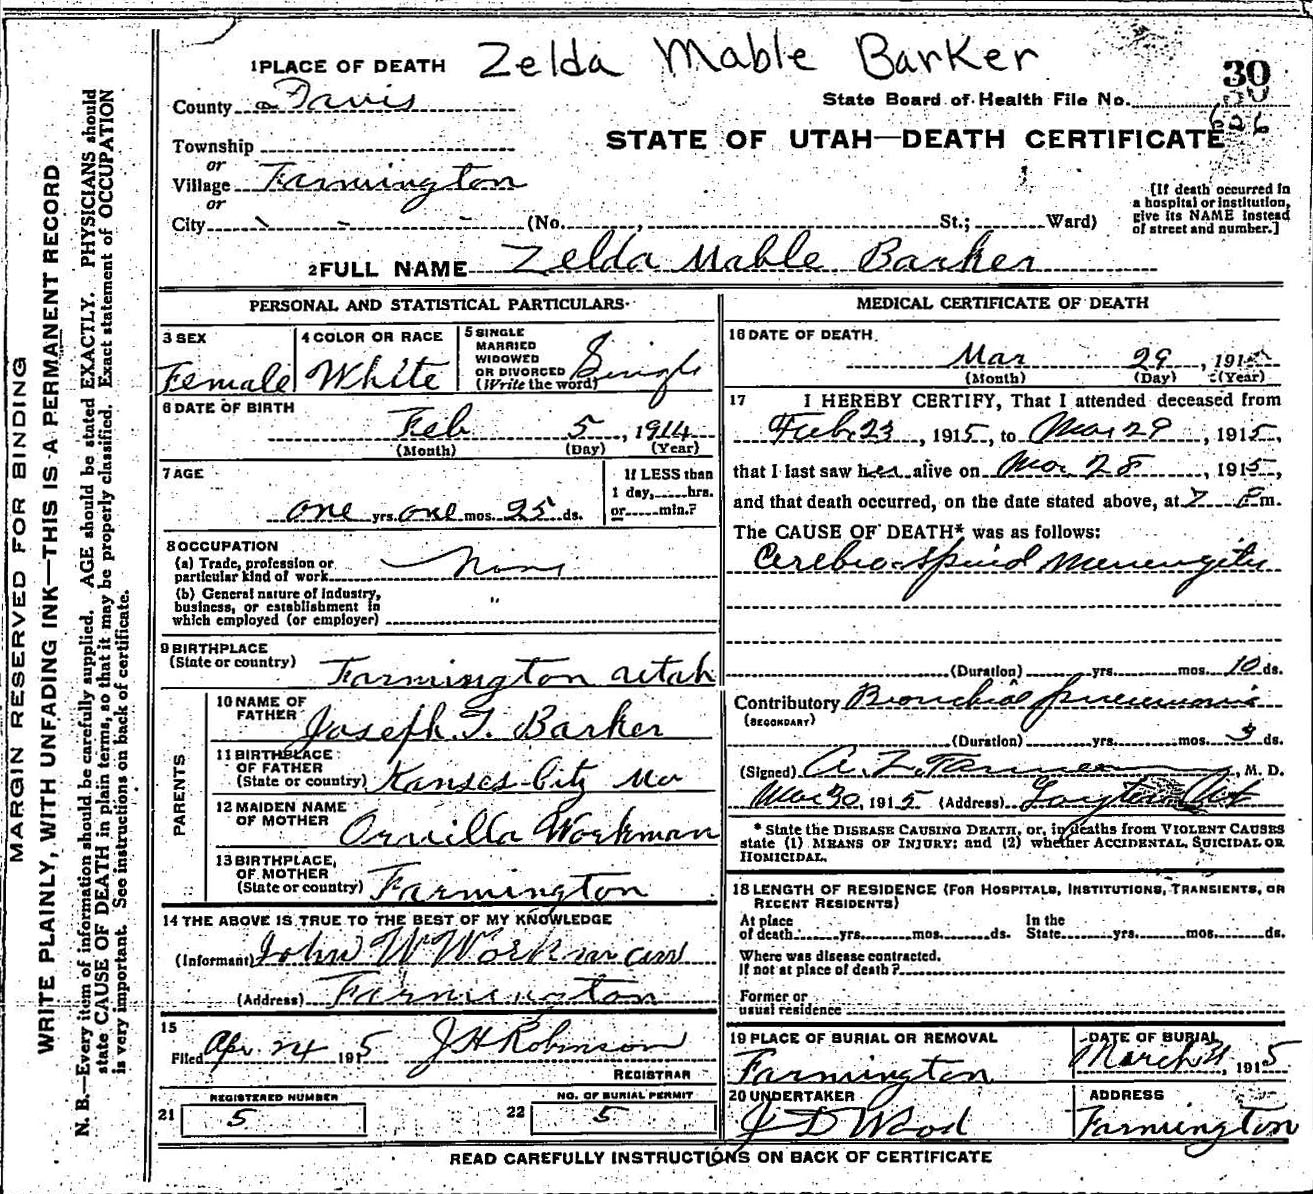 Zelda Mable Barker
1 PLACE OF DEATH
30
County Davis
State Board of Health File No.
626
STATE OF UTAH—DEATH CERTIFICATE
Township
or
Village Farmington
or
City - - - (No. , St.; Ward)
[If death occurred in a hospital or institution, give its NAME instead of street and number.]
2 FULL NAME Zelda Mable Barker
MARGIN RESERVED FOR BINDING
WRITE PLAINLY, WITH UNFADING INK—THIS IS A PERMANENT RECORD
N. B.—Every item of information should be carefully supplied. AGE should be stated EXACTLY. PHYSICIANS should
state CAUSE OF DEATH in plain terms, so that it may be properly classified. Exact statement of OCCUPATION
is very important. See instructions on back of certificate.
PERSONAL AND STATISTICAL PARTICULARS
3 SEX
Female
4 COLOR OR RACE
White
5 SINGLE
MARRIED
WIDOWED
OR DIVORCED
(Write the word)
Single
6 DATE OF BIRTH
Feb 5, 1914
(Month) (Day) (Year)
7 AGE
one yrs. one mos. 25 ds.
If LESS than
1 day, hrs.
or min.?
8 OCCUPATION
(a) Trade, profession or
particular kind of work None
(b) General nature of industry,
business, or establishment in
which employed (or employer) "
9 BIRTHPLACE
(State or country) Farmington Utah
PARENTS
10 NAME OF
FATHER Joseph T. Barker
11 BIRTHPLACE
OF FATHER
(State or country) Kansas City Mo
12 MAIDEN NAME
OF MOTHER Orvilla Workman
13 BIRTHPLACE,
OF MOTHER
(State or country) Farmington
14 THE ABOVE IS TRUE TO THE BEST OF MY KNOWLEDGE
(Informant) John W Workman
(Address) Farmington
15
Filed Apr. 24 1915 J H Robinson
REGISTRAR
21 REGISTERED NUMBER
5
22 NO. OF BURIAL PERMIT
5
MEDICAL CERTIFICATE OF DEATH
16 DATE OF DEATH
Mar 29, 1915
(Month) (Day) (Year)
17 I HEREBY CERTIFY, That I attended deceased from
Feb. 23, 1915, to Mar 29, 1915,
that I last saw her alive on Mar 28, 1915,
and that death occurred, on the date stated above, at 7 P m.
The CAUSE OF DEATH* was as follows:
Cerebro-spinal Menengitis
(Duration) yrs. mos. 10 ds.
Contributory Bronchial pneumonia
(SECONDARY)
(Duration) yrs. mos. 3 ds.
(Signed) A. Z. Tanner, M. D.
Mar 30, 1915 (Address) Layton Ut
* State the DISEASE CAUSING DEATH, or, in deaths from VIOLENT CAUSES
state (1) MEANS OF INJURY; and (2) whether ACCIDENTAL, SUICIDAL OR
HOMICIDAL.
18 LENGTH OF RESIDENCE (FOR HOSPITALS, INSTITUTIONS, TRANSIENTS, OR
RECENT RESIDENTS)
At place
of death yrs. mos. ds.
In the
State yrs. mos. ds.
Where was disease contracted.
If not at place of death?
Former or
usual residence
19 PLACE OF BURIAL OR REMOVAL
Farmington
DATE OF BURIAL
March 31, 1915
20 UNDERTAKER
J D Wood
ADDRESS
Farmington
READ CAREFULLY INSTRUCTIONS ON BACK OF CERTIFICATE